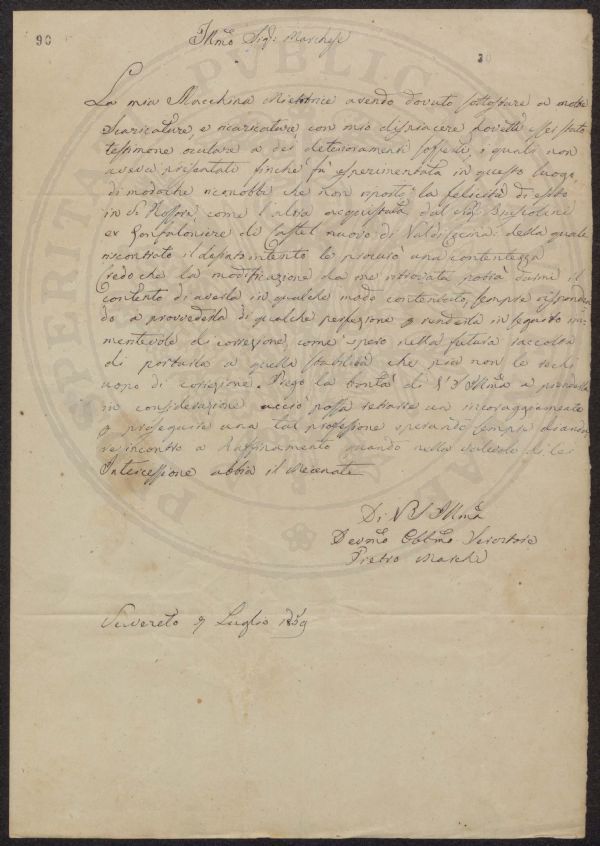 90
Illmo Sigr: Marchese
30
La mia Macchina Mietitrice avendo dovuto sottostare a molte
Scaricature, e ricaricature con mio dispiacere dovetti esser stato
testimone oculare a dei deterioramenti sofferti, i quali non
aveva presentati finchè fù esperimentata in questo luogo
di modo che riconobbi che non riportò la felicità di esito
in come l'altra acquistata dal Sigr
ex Gonfaloniere di Castel nuovo di Val di Cecina: della quale
riscontrato il desiato intento le procurò una contentezza
Credo che la modificazione da me ritrovata potrà darmi il
contento di averla in qualche modo contentato, sempre
do a provvederla di qualche perfezione p renderla in seguito im=
mentevole di correzione, come spero nella futura raccolta
di portarla a quella stabilità che più non le rechi
uopo di correzione. Prego la bontà di V S Illma a prenderla
in considerazione acciò possa retrarre un incoraggiamento
p proseguire una tal professione sperando sempre
resincontro a Raffinamento quando nella valevole di lei
Intercessione abbia il Mecenate
Di V S Illma
Devmo Obbmo Servitore
Pietro Marchi
Suvereto 9 Luglio 1859